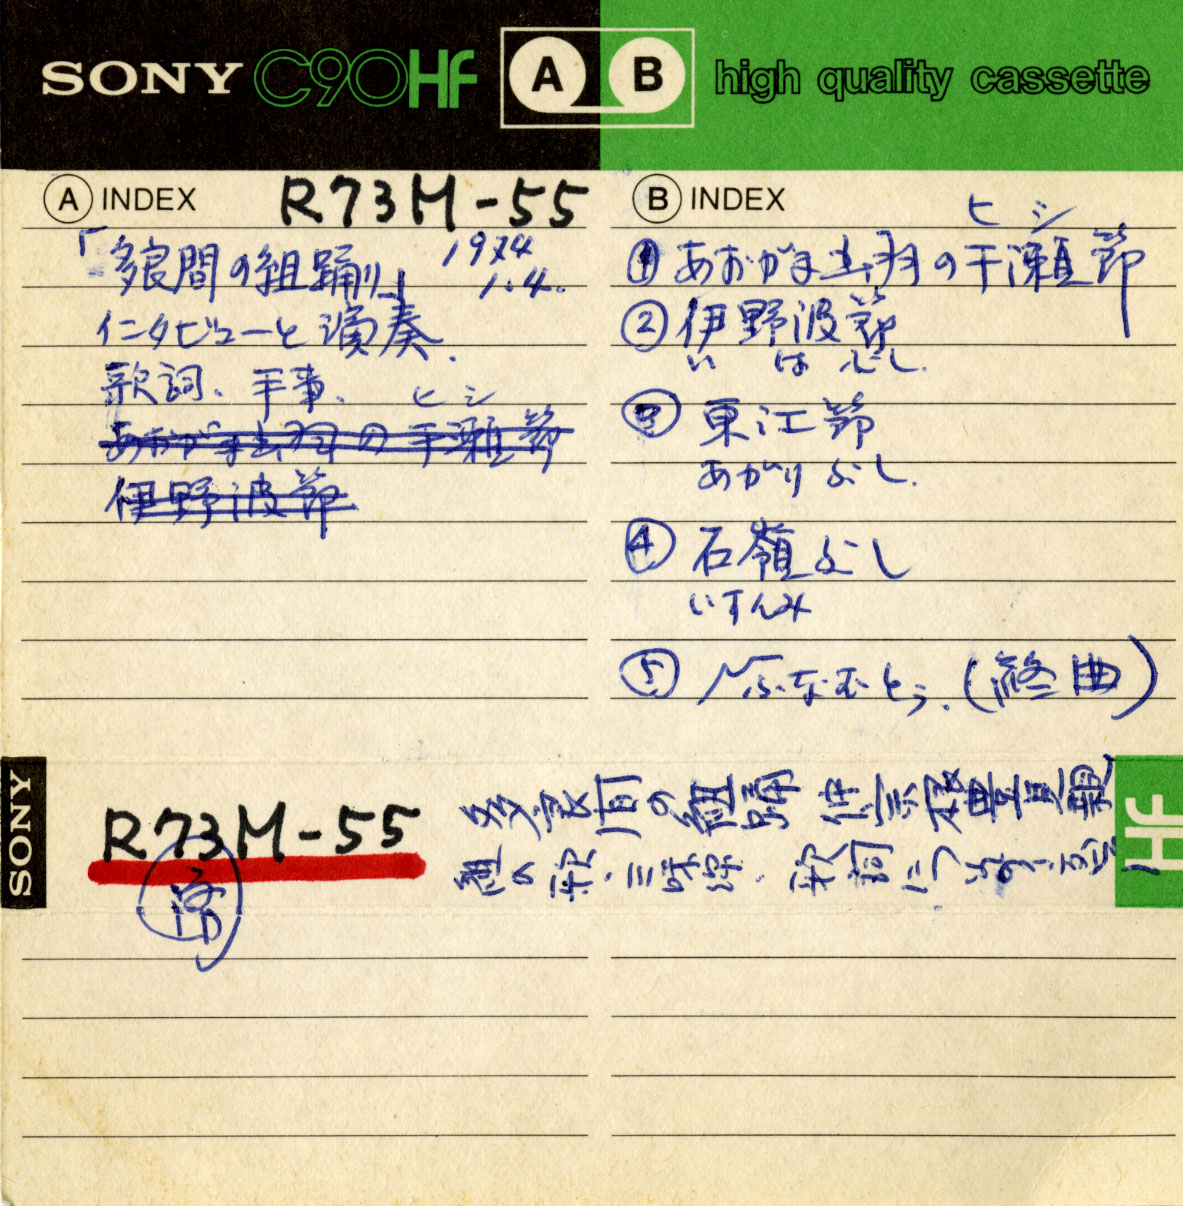 SONY C90HF A B high quality cassette
A INDEX R73M-55
「多良間の組踊」 1974
1.4.
インタビューと演奏.
歌詞、手事、
ヒシ
あおがま出羽の干瀬節
伊野波節
B INDEX
ヒシ
① あおがま出羽の干瀬節
② 伊野波節
い は ぶし.
③ 東江節
あがりぶし.
④ 石嶺ぶし
いすんみ
⑤ ふなむとぅ.(終曲)
SONY
R73M-55
済
多良間の組踊 伊
組の歌、三味線、歌詞について
HF